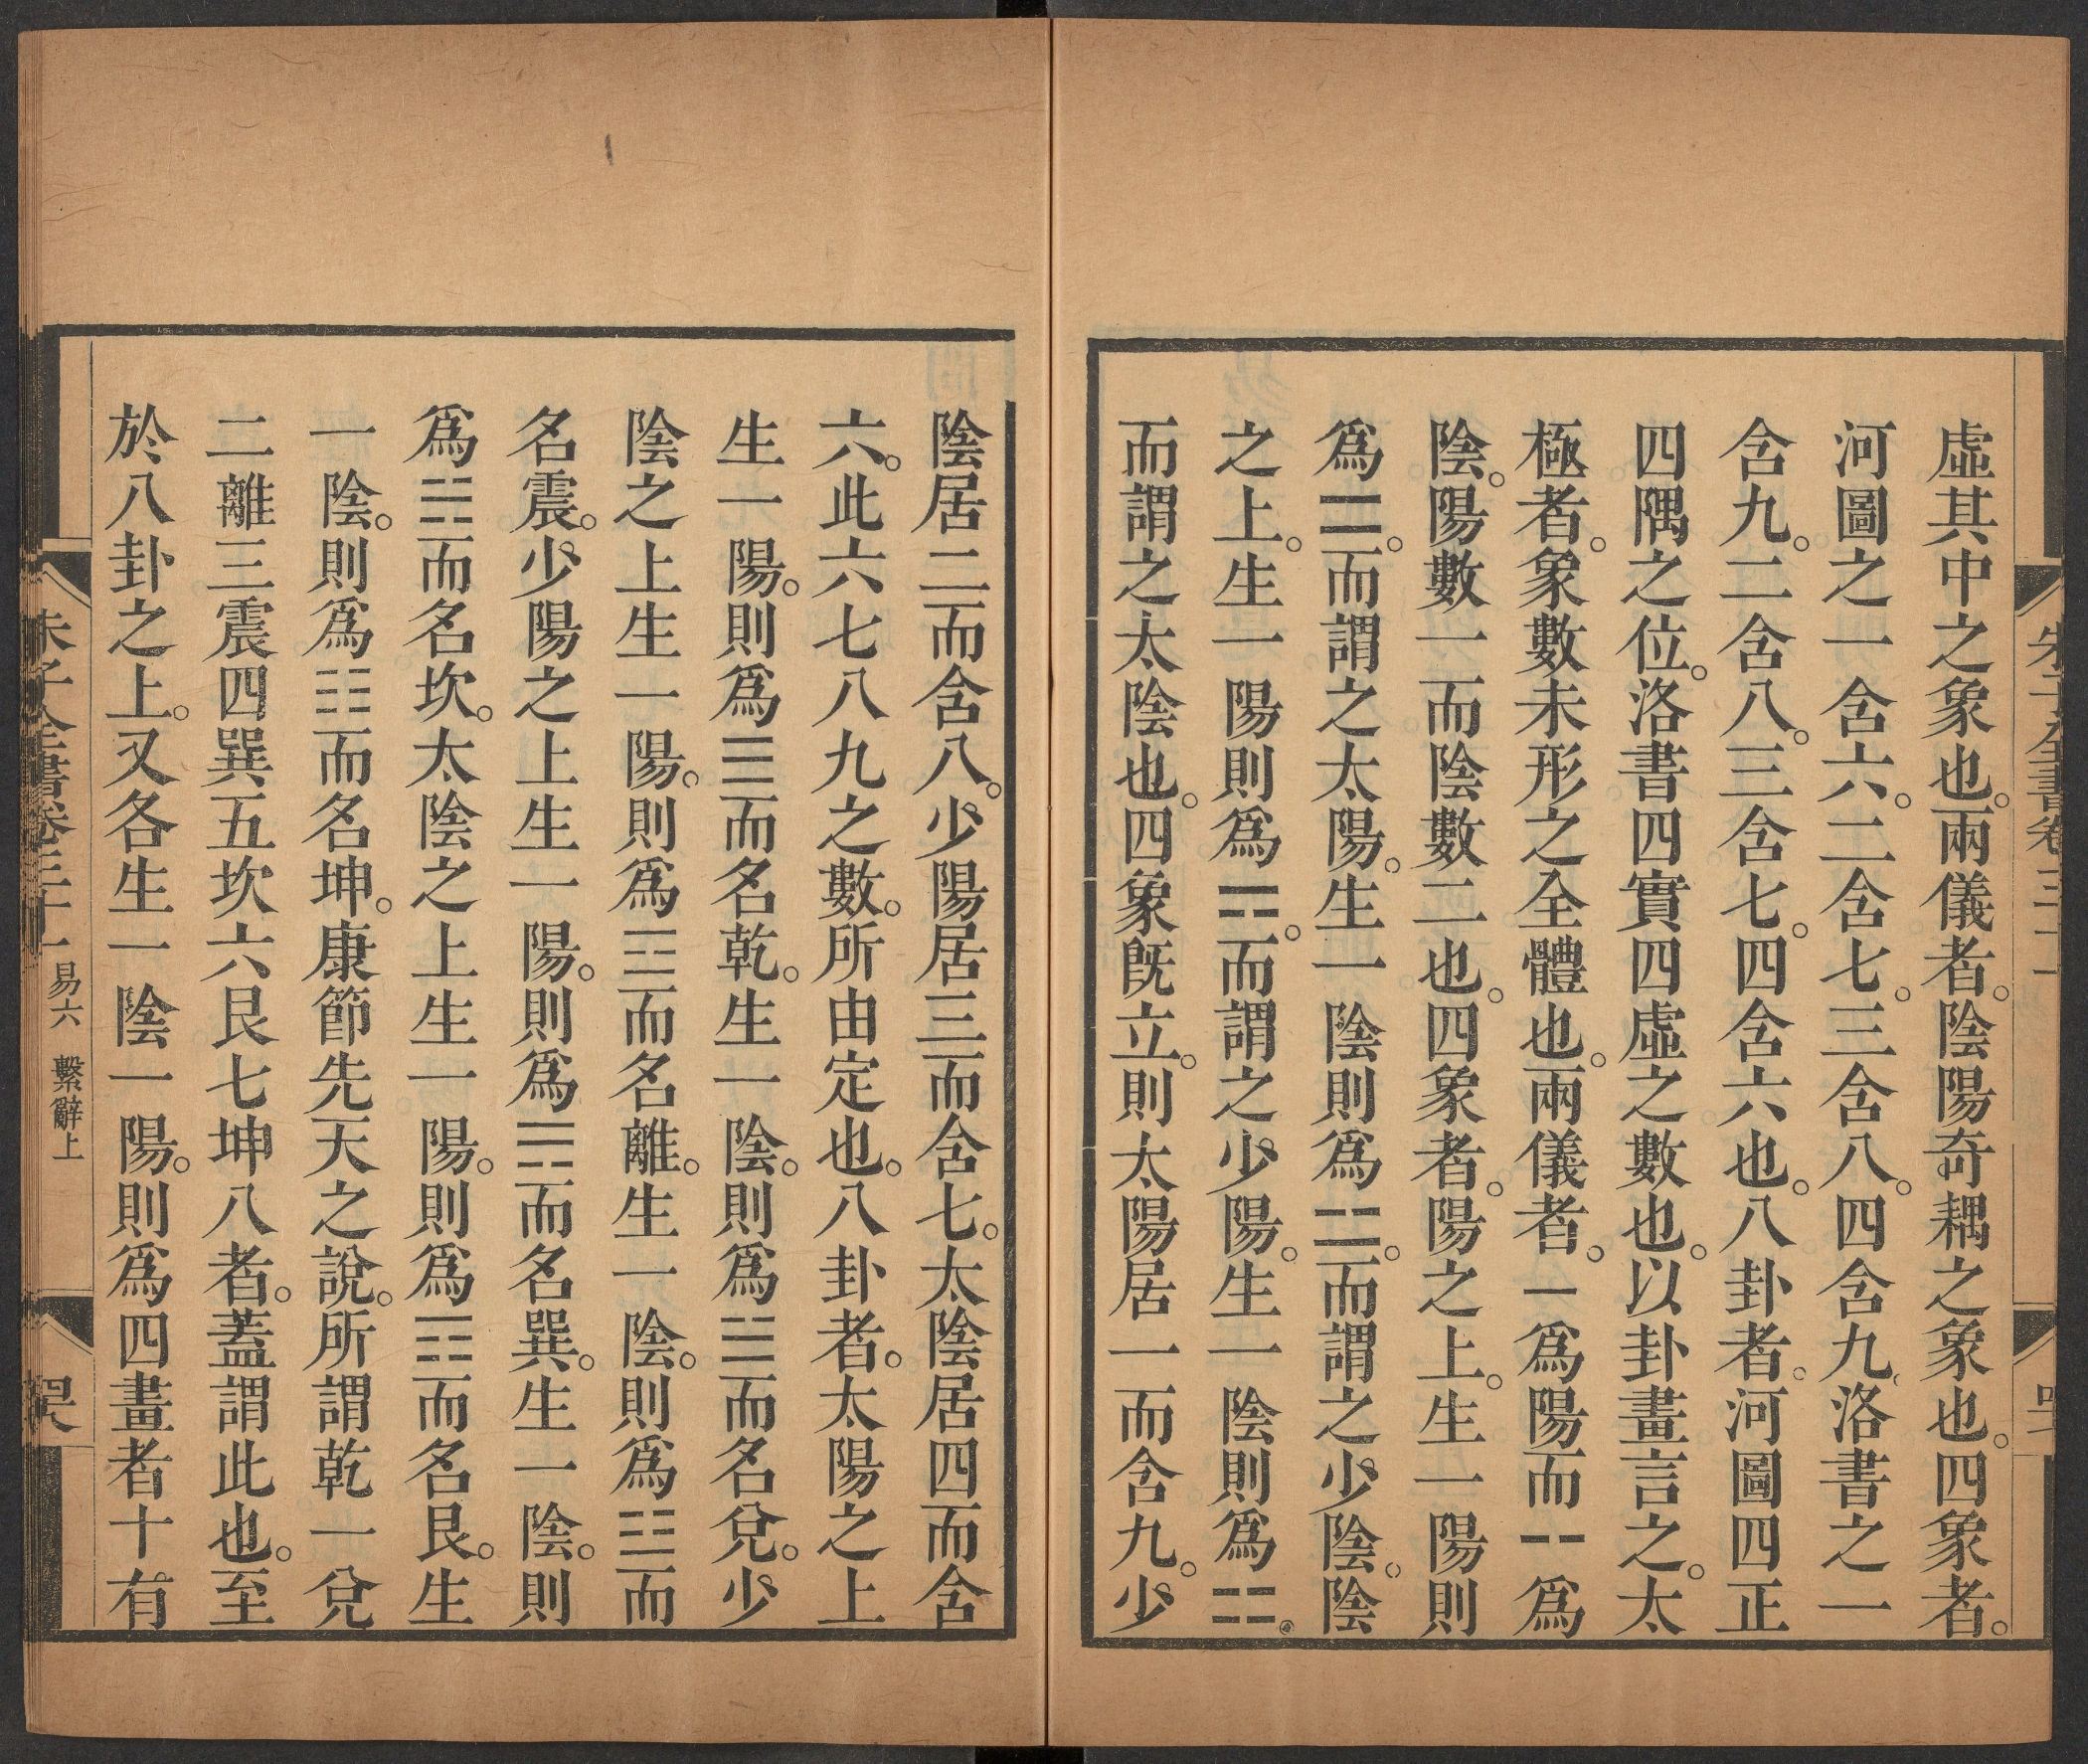 虛其中之象也。兩儀者。陰陽奇耦之象也。四象者。
河圖之一含六。二含七。三含八。四含九。洛書之一
含九。二含八。三含七。四含六也。八卦者。河圖四正
四隅之位。洛書四實四虛之數也。以卦畫言之。太
極者。象數未形之全體也。兩儀者。⚊爲陽而⚋爲
陰。陽數一而陰數二也。四象者。陽之上。生一陽則
爲⚌。而謂之太陽。生一陰則爲⚍。而謂之少陰。陰
之上。生一陽則爲⚎。而謂之少陽。生一陰則爲⚏。
而謂之太陰也。四象既立。則太陽居一而含九。少
陰居二而含八。少陽居三而含七。太陰居四而含
六。此六七八九之數。所由定也。八卦者。太陽之上
生一陽。則爲☰而名乾。生一陰。則爲☱而名兌。少
陰之上生一陽。則爲☲而名離。生一陰。則爲☳而
名震。少陽之上生一陽。則爲☴而名巽。生一陰。則
爲☵而名坎。太陰之上生一陽。則爲☶而名艮。生
一陰。則爲☷而名坤。康節先天之說。所謂乾一兌
二離三震四巽五坎六艮七坤八者。蓋謂此也。至
於八卦之上。又各生一陰一陽。則爲四畫者十有
朱子全書卷三十一 易六 繫辭上